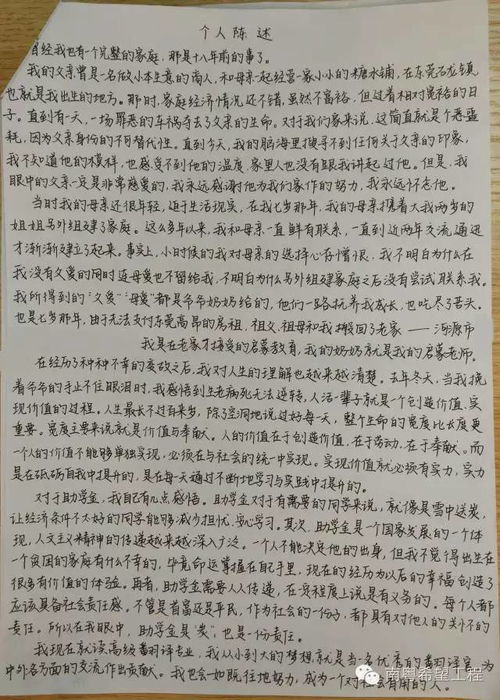 个人陈述
自经我也有一个完整的家庭，那是十八年前的事了。
我的父亲曾是一名做小本生意的商人，和母亲一起经营一家小小的糖水铺，在东莞石龙镇
也就是我出生的地方。那时，家庭经济情况还不错，虽然不富裕，但过着相对宽裕的日
子。直到有一天，一场罪恶的车祸夺去了父亲的生命。对于我们家来说，这简直就是个悲噩
耗，因为父亲身份的不可替代性。直到今天，我的脑海里搜寻不到任何关于父亲的印象，
我不知道他的模样，也感受不到他的温度，家里人也没有跟我讲起过他。但是，我
眼中的父亲一定是非常慈爱的，我永远感谢他为我们家作的努力，我永远怀念他。
当时我的母亲还很年轻，迫于生活现实，在我七岁那年，我的母亲携着大我两岁的
姐姐另外组建了家庭。这么多年以来，我和母亲一直鲜有联系，一直到近两年交流通迅
才渐渐建立了起来。事实上，小时候的我对母亲的选择心存憎恨，我不明白为什么在
我没有父爱的同时连母爱也不留给我，不明白为什么另外组建家庭之后没有尝试联系我。
我所得到的“父爱”“母爱”都是爷爷奶奶给的，他们一路抚养我成长，也吃尽了苦头。
也是七岁那年，由于无法支付东莞高昂的房租，祖父、祖母和我搬回了老家——河源市
我是在老家才接受的启蒙教育，我的奶奶就是我的启蒙老师。
在经历了种种不幸的变故之后，我对人生的理解也越来越清楚。去年冬天，当我挽
着爷爷的手止不住眼泪时，我感悟到生老病死无法逆转，人活一辈子就是一个创造价值、实
现价值的过程。人生最长不过百来岁，除了空洞地说过好每一天，整个生命的宽度比长度更
重要。宽度主要来说就是价值与奉献。人的价值在于创造价值，在于劳动，在于奉献。而
一个人的价值不能够单独实现，必须在与社会的统一中实现。实现价值就必须有实力，实力
是在砥砺自我中提升的，是在每天通过不断地学习与实践中提升的。
对于助学金，我自己有几点感悟。助学金对于有需要的同学来说，就像是雪中送炭，
让经济条件不太好的同学能够减少担忧，学心学习。其次，助学金是一个国家发展的一个体
现，人文主义精神的传递越来越深入广泛。一个人不能决定他的出身，但我不觉得出生在
一个贫困的家庭有什么不幸的，毕竟命运掌握在自己手里，现在的经历为以后的幸福创造了
很多有价值的体验。再者，助学金需要人人传递，在某程度上说是有义务的。每个人都
应该具备社会责任感，不管是首富还是平民，作为社会的一份子，都具有对他人的关怀的
责任。所以在我眼中，助学金是“爱”，也是一份责任。
我现在就读高级翻译专业，我从小到大的梦想就是当一名优秀的翻译官，为
中外各方面的交流作出贡献。我也会一如既往地努力，成为一个对社会有用的人。
南粤希望工程